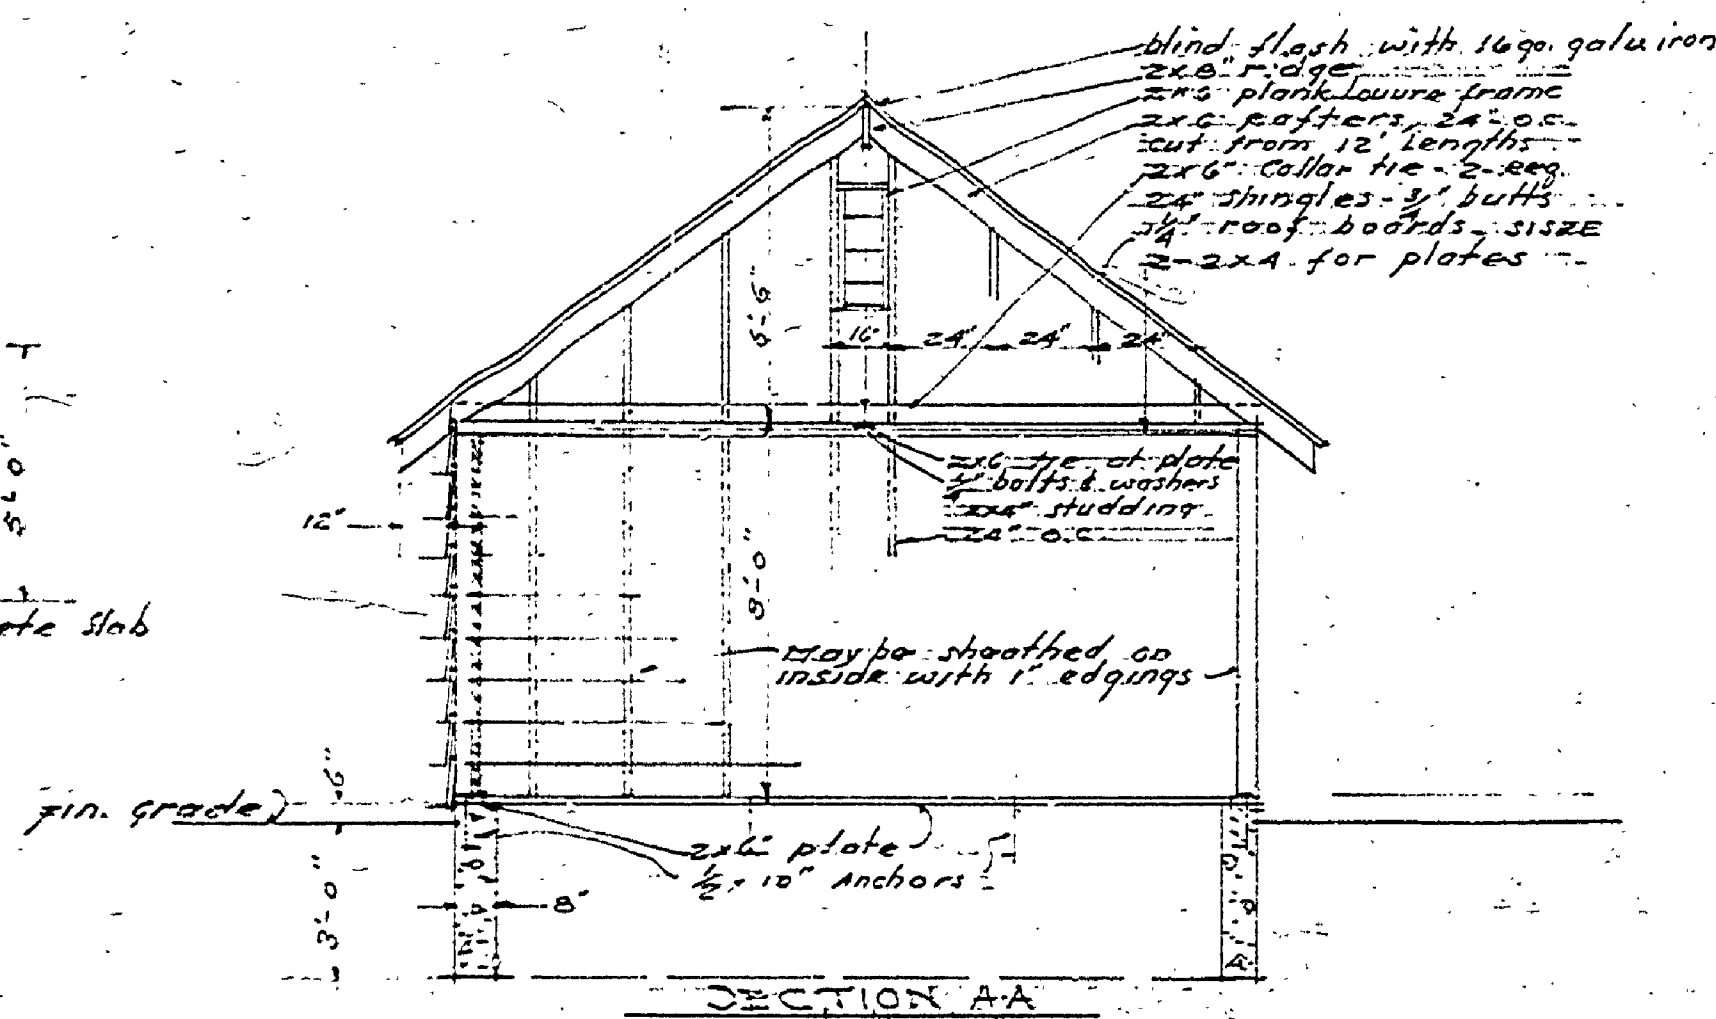 blind flash with 16 ga. galv iron
2x8" ridge
2x6 plank louvre frame
2x6 rafters, 24" o.c.
cut from 12' lengths
2x6" Collar tie - 2-req.
24" shingles - 3/4" butts
1/4" roof boards - S1S2E
2-2x4 for plates
5'-6"
16"
24"
24"
24"
5'-0"
2x6 tie at plate
bolts & washers
2x4" studding
24" o.c.
12"
8'-0"
ete slab
May be sheathed on
inside with 1" edgings
6"
Fin. grade
2x6" plate
1/2 x 10" Anchors
8"
3'-0"
SECTION A-A